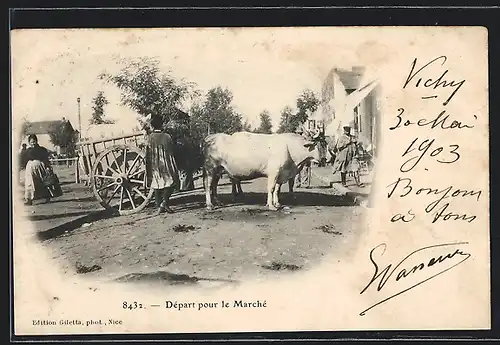 Vichy
30 Mai
1903
Bonjour
à tous
8432. — Départ pour le Marché
Edition Giletta, phot., Nice